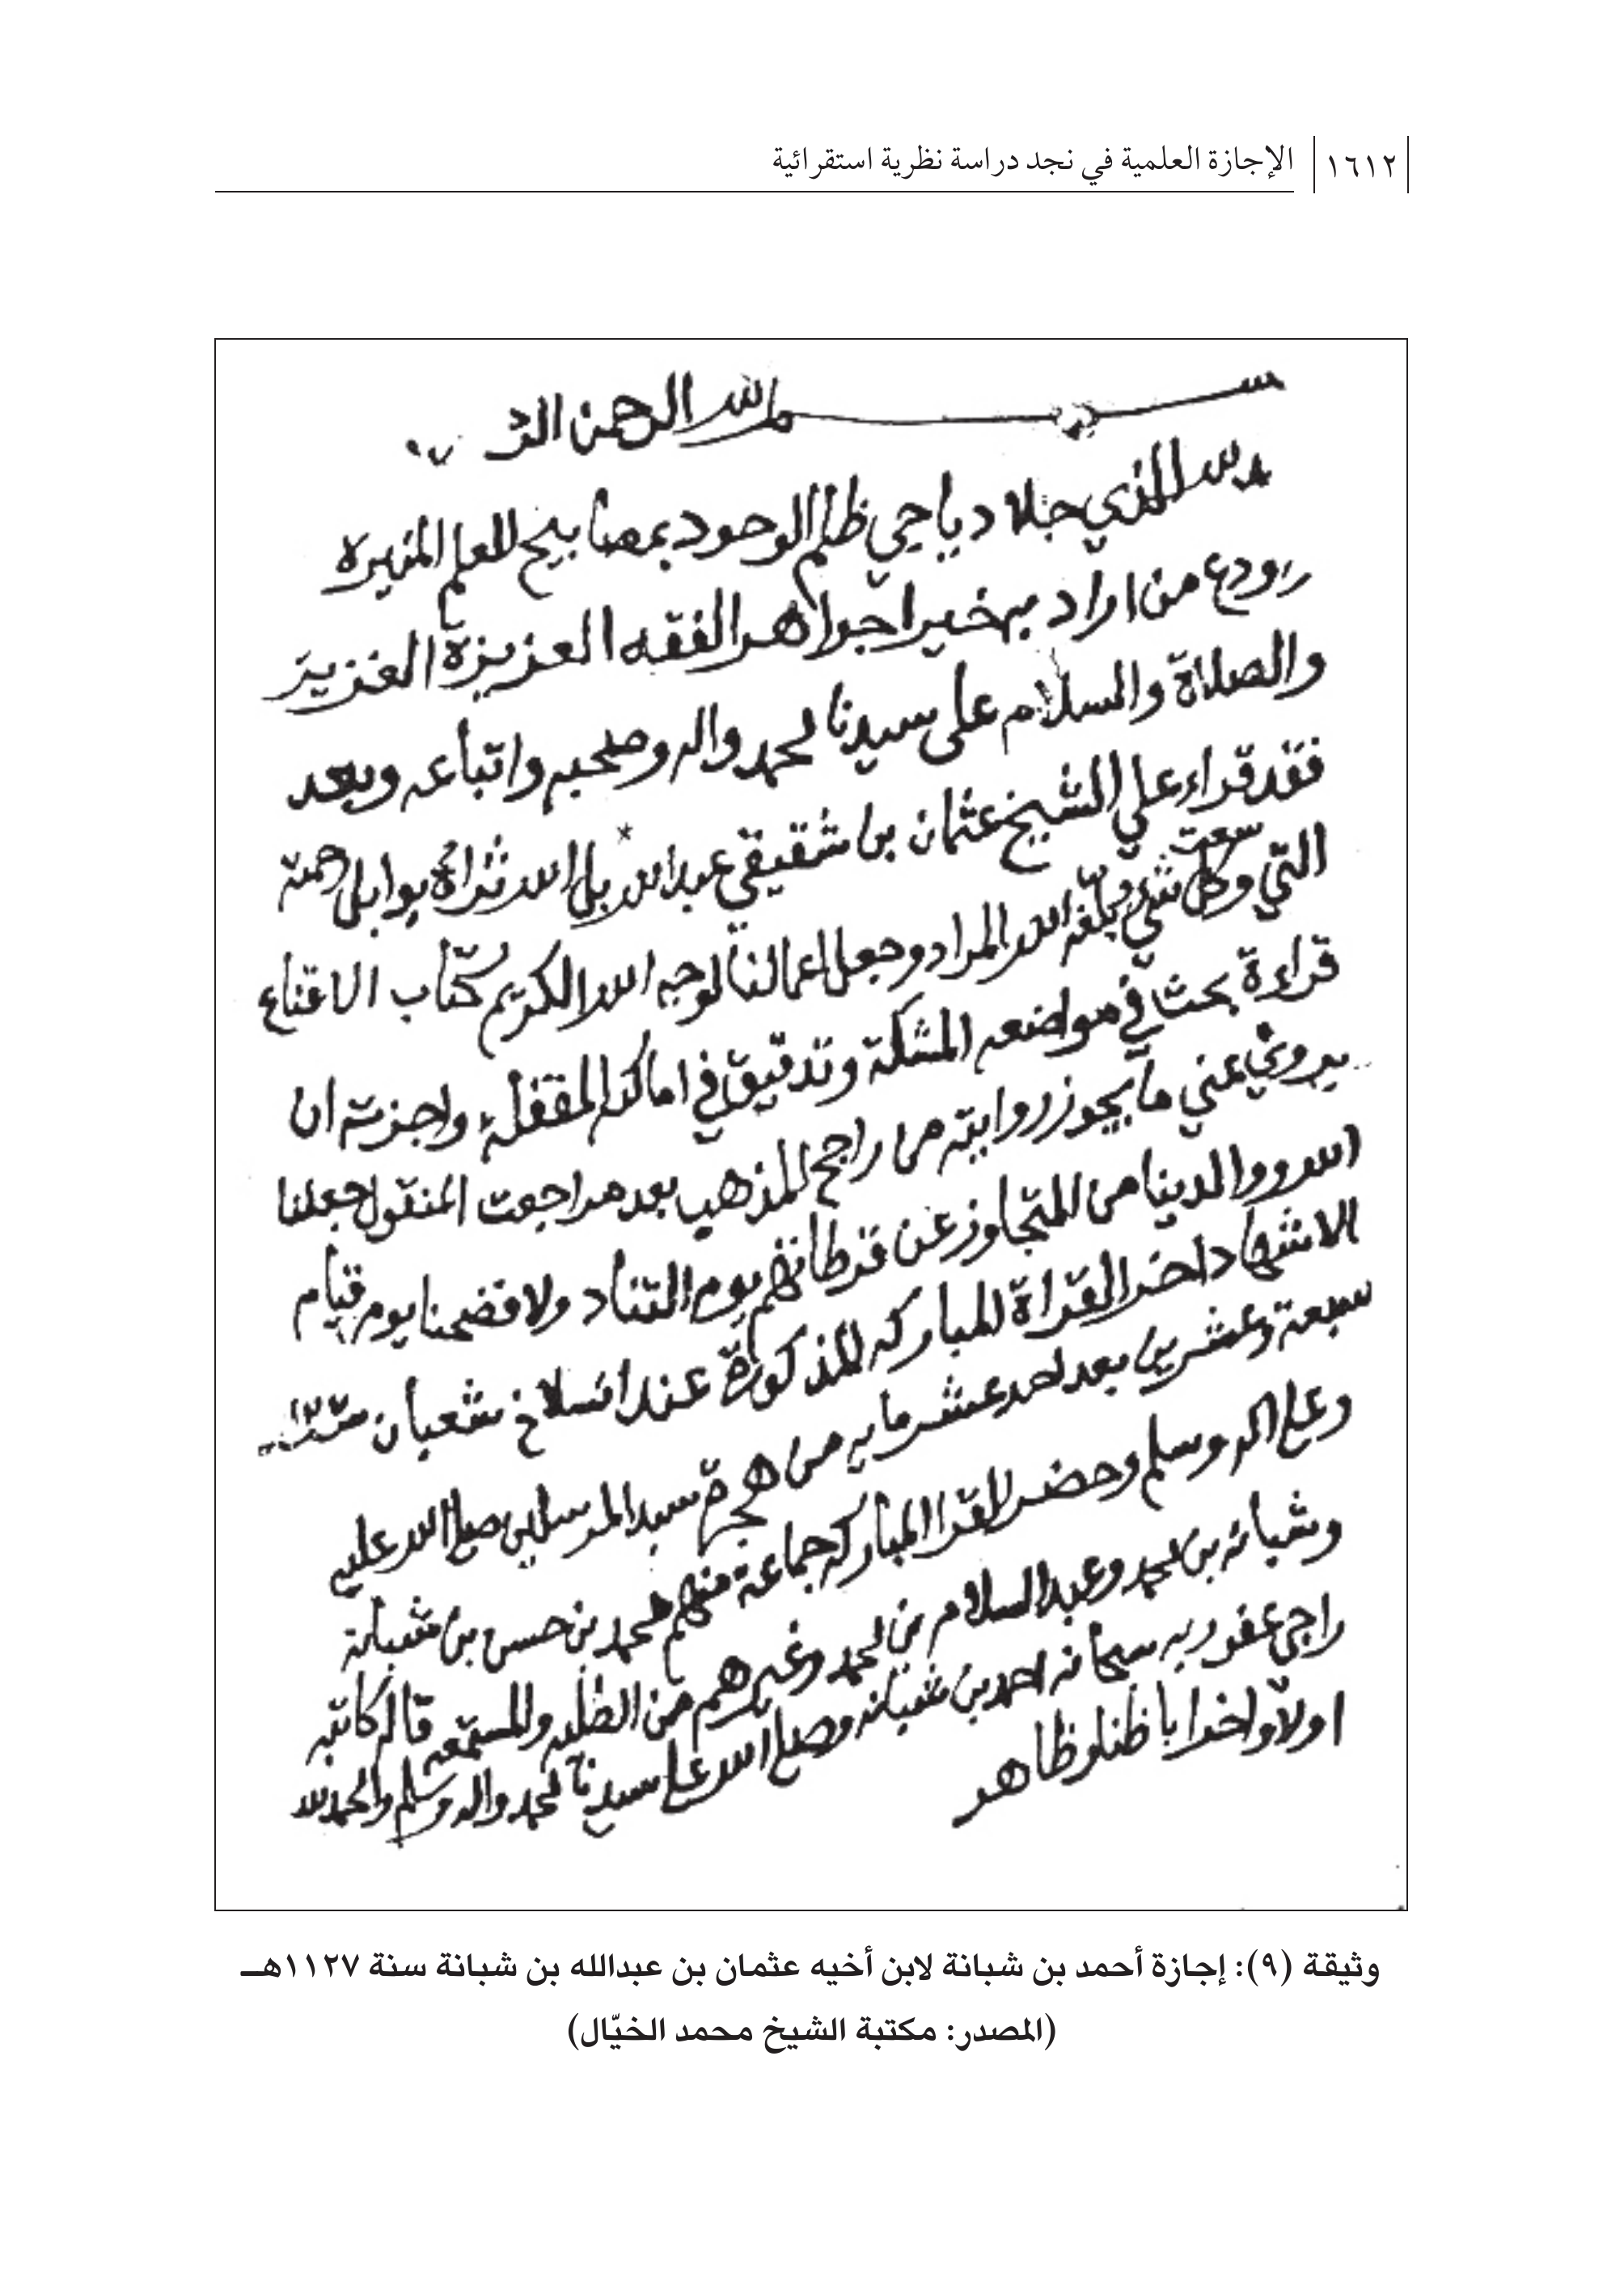 ١٦١٢
الإجازة العلمية في نجد دراسة نظرية استقرائية
بسم الله الرحمن الر
لله الذي جلا دياجي ظلم الوجود بمصابيح العلم المنيره
واودع من اراد به خيرا جواهر الفقه العزيزة الغزير
والصلاة والسلام على سيدنا محمد واله وصحبه واتباعه وبعد
فقد قراء علي الشيخ عثمان بن شقيقي عبدالله بل الله ثراه بوابل رحمته
التي وسعت كل شي وبلغه الله المراد وجعل اعمالنا لوجه الله الكريم كتاب الاقناع
قراءة بحث في مواضعه المشكلة وتدقيق في اماكنه المقفله واجزته ان
يروي عني ما يجوز روايته من راجح المذهب بعد مراجعت المنقول جعلنا
الله ووالدينا من المتجاوز عن فرطاتهم يوم التناد ولا فضحنا يوم قيام
الاشهاد اخر القراة المباركه المذكورة عند انسلاخ شعبان سنة
سبعة وعشرين بعد احد عشر مايه من هجرة سيد المرسلين صلى الله عليه
وعلى اله وسلم وحضر القرا المباركه جماعة منهم محمد بن حسن بن شبانة
وشبانه بن محمد وعبد السلام بن محمد وغيرهم من الطلبه والمستمعه قاله كاتبه
راجي عفو ربه سبحانه احمد بن شبانه وصلى الله على سيدنا محمد واله وسلم والحمد لله
اولا واخرا باطنا وظاهر
وثيقة (٩): إجازة أحمد بن شبانة لابن أخيه عثمان بن عبدالله بن شبانة سنة ١١٢٧هـ
(المصدر: مكتبة الشيخ محمد الخيّال)